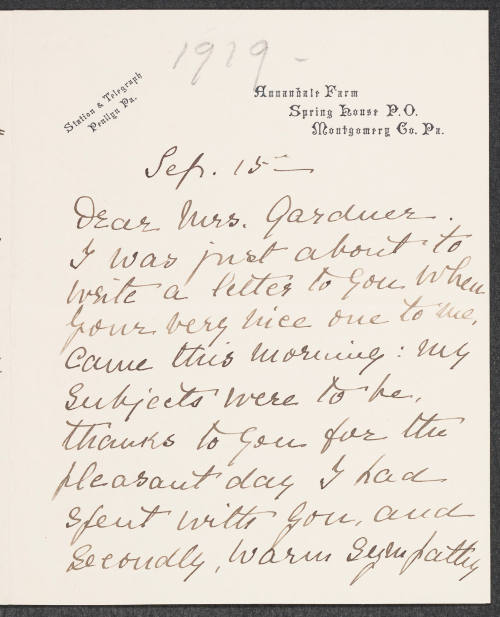 1919 -
Station & Telegraph
Penllyn Pa.
Annandale Farm
Spring House P.O.
Montgomery Co. Pa.
Sep. 15th
Dear Mrs. Gardner.
I was just about to
write a letter to you when
your very nice one to me,
came this morning: my
subjects were to be,
thanks to you for the
pleasant day I had
spent with you, and
secondly, warm sympathy